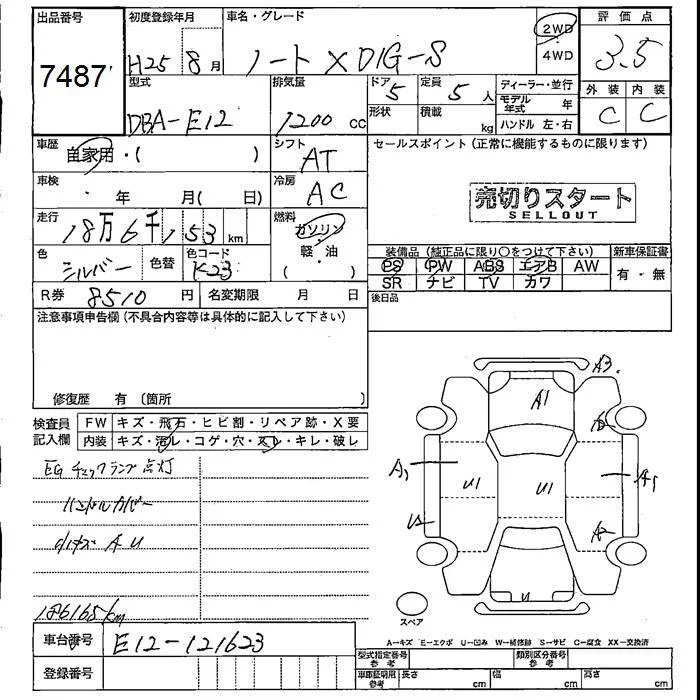 出品番号 初度登録年月 車名・グレード 評価点
7487 H25 8月 ノート X DIG-S 2WD 4WD 3.5
型式 排気量 ドア 定員 ディーラー・並行 外装 内装
DBA-E12 1200 CC 5 5人 モデル年式 年 C C
形状 積載 kg ハンドル 左・右
車歴 自家用・( ) シフト AT セールスポイント (正常に機能するものに限ります)
車検 ・ 年 月( 日) 冷房 AC
売切りスタート
SELLOUT
走行 18万6千153km 燃料 ガソリン 軽・油 ( )
色 シルバー 色替 色コード K23
装備品 (純正品に限り○をつけて下さい) 新車保証書
PS PW ABS エアB AW 有・無
SR ナビ TV カワ
R券 8510 円 名変期限 月 日 後日品
注意事項申告欄 (不具合内容等は具体的に記入して下さい)
修復歴 有 (箇所 )
検査員記入欄 FW キズ・飛石・ヒビ割・リペア跡・X要
内装 キズ・汚レ・コゲ・穴・スレ・キレ・破レ
EGチェックランプ点灯
ハンドルカバー
A U
186165km
A3
A1
A1 U1 U1 A1
U2 A2
U
スペア
A-キズ E-エクボ U-凹み W-補修跡 S-サビ C-腐食 XX-交換済
車台番号 E12-121623
型式指定番号 参考 類別区分番号 参考
登録番号
車庫証明用 参考 長さ cm 幅 cm 高さ cm